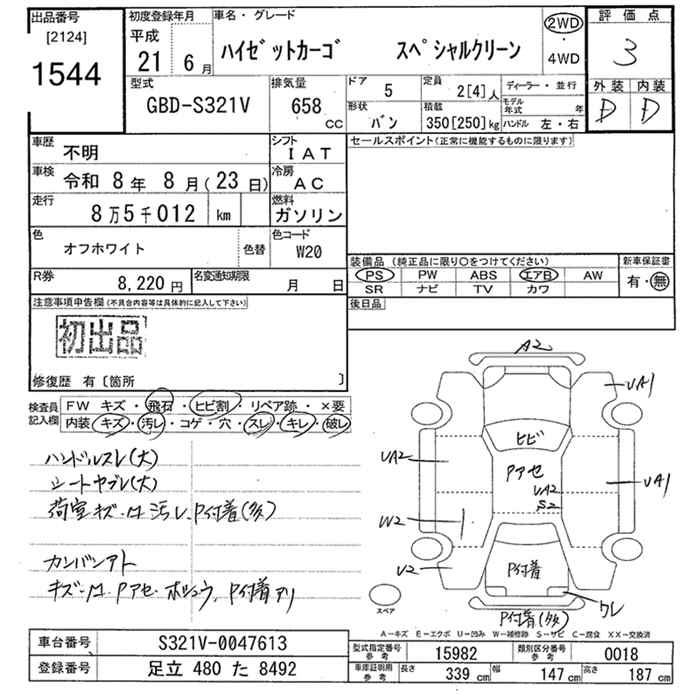 出品番号
[2124]
1544
初度登録年月
平成
21年 6月
車名・グレード
ハイゼットカーゴ スペシャルクリーン
2WD
4WD
評価点
3
外装 内装
D D
型式
GBD-S321V
排気量
658 CC
ドア 5
定員 2[4]人
ディーラー・並行
モデル年式 年
形状 バン
積載 350[250]kg
ハンドル 左・右
車歴 不明
シフト IAT
車検 令和 8年 8月(23日)
冷房 AC
走行 8万5千012 km
燃料 ガソリン
色 オフホワイト 色替
色コード W20
R券 8,220円
名変通知期限 月 日
セールスポイント(正常に機能するものに限ります)
装備品(純正品に限り○をつけてください)
PS PW ABS エアB AW
SR ナビ TV カワ
新車保証書
有・無
後日品
注意事項申告欄(不具合内容等は具体的に記入して下さい)
初出品
修復歴 有〔箇所 〕
検査員記入欄
FW キズ・飛石・ヒビ割・リペア跡・×要
内装・キズ・汚レ・コゲ・穴・スレ・キレ・破レ
ハンドルスレ(大)
シートヤブレ(大)
荷室キズ・凹 汚レ、P付着(多)
カンバンアト
キズ・凹 Pアセ ホシュウ、P付着アリ
A2
UA1
ヒビ
UA2
Pアセ
UA2
S2
UA1
W2
U2
P付着
ワレ
P付着(多)
スペア
A−キズ E−エクボ U−凹み W−補修跡 S−サビ C−腐食 XX−交換済
車台番号 S321V-0047613
登録番号 足立 480 た 8492
型式指定番号 参考 15982
類別区分番号 参考 0018
車庫証明用 参考 長さ 339 cm 幅 147 cm 高さ 187 cm